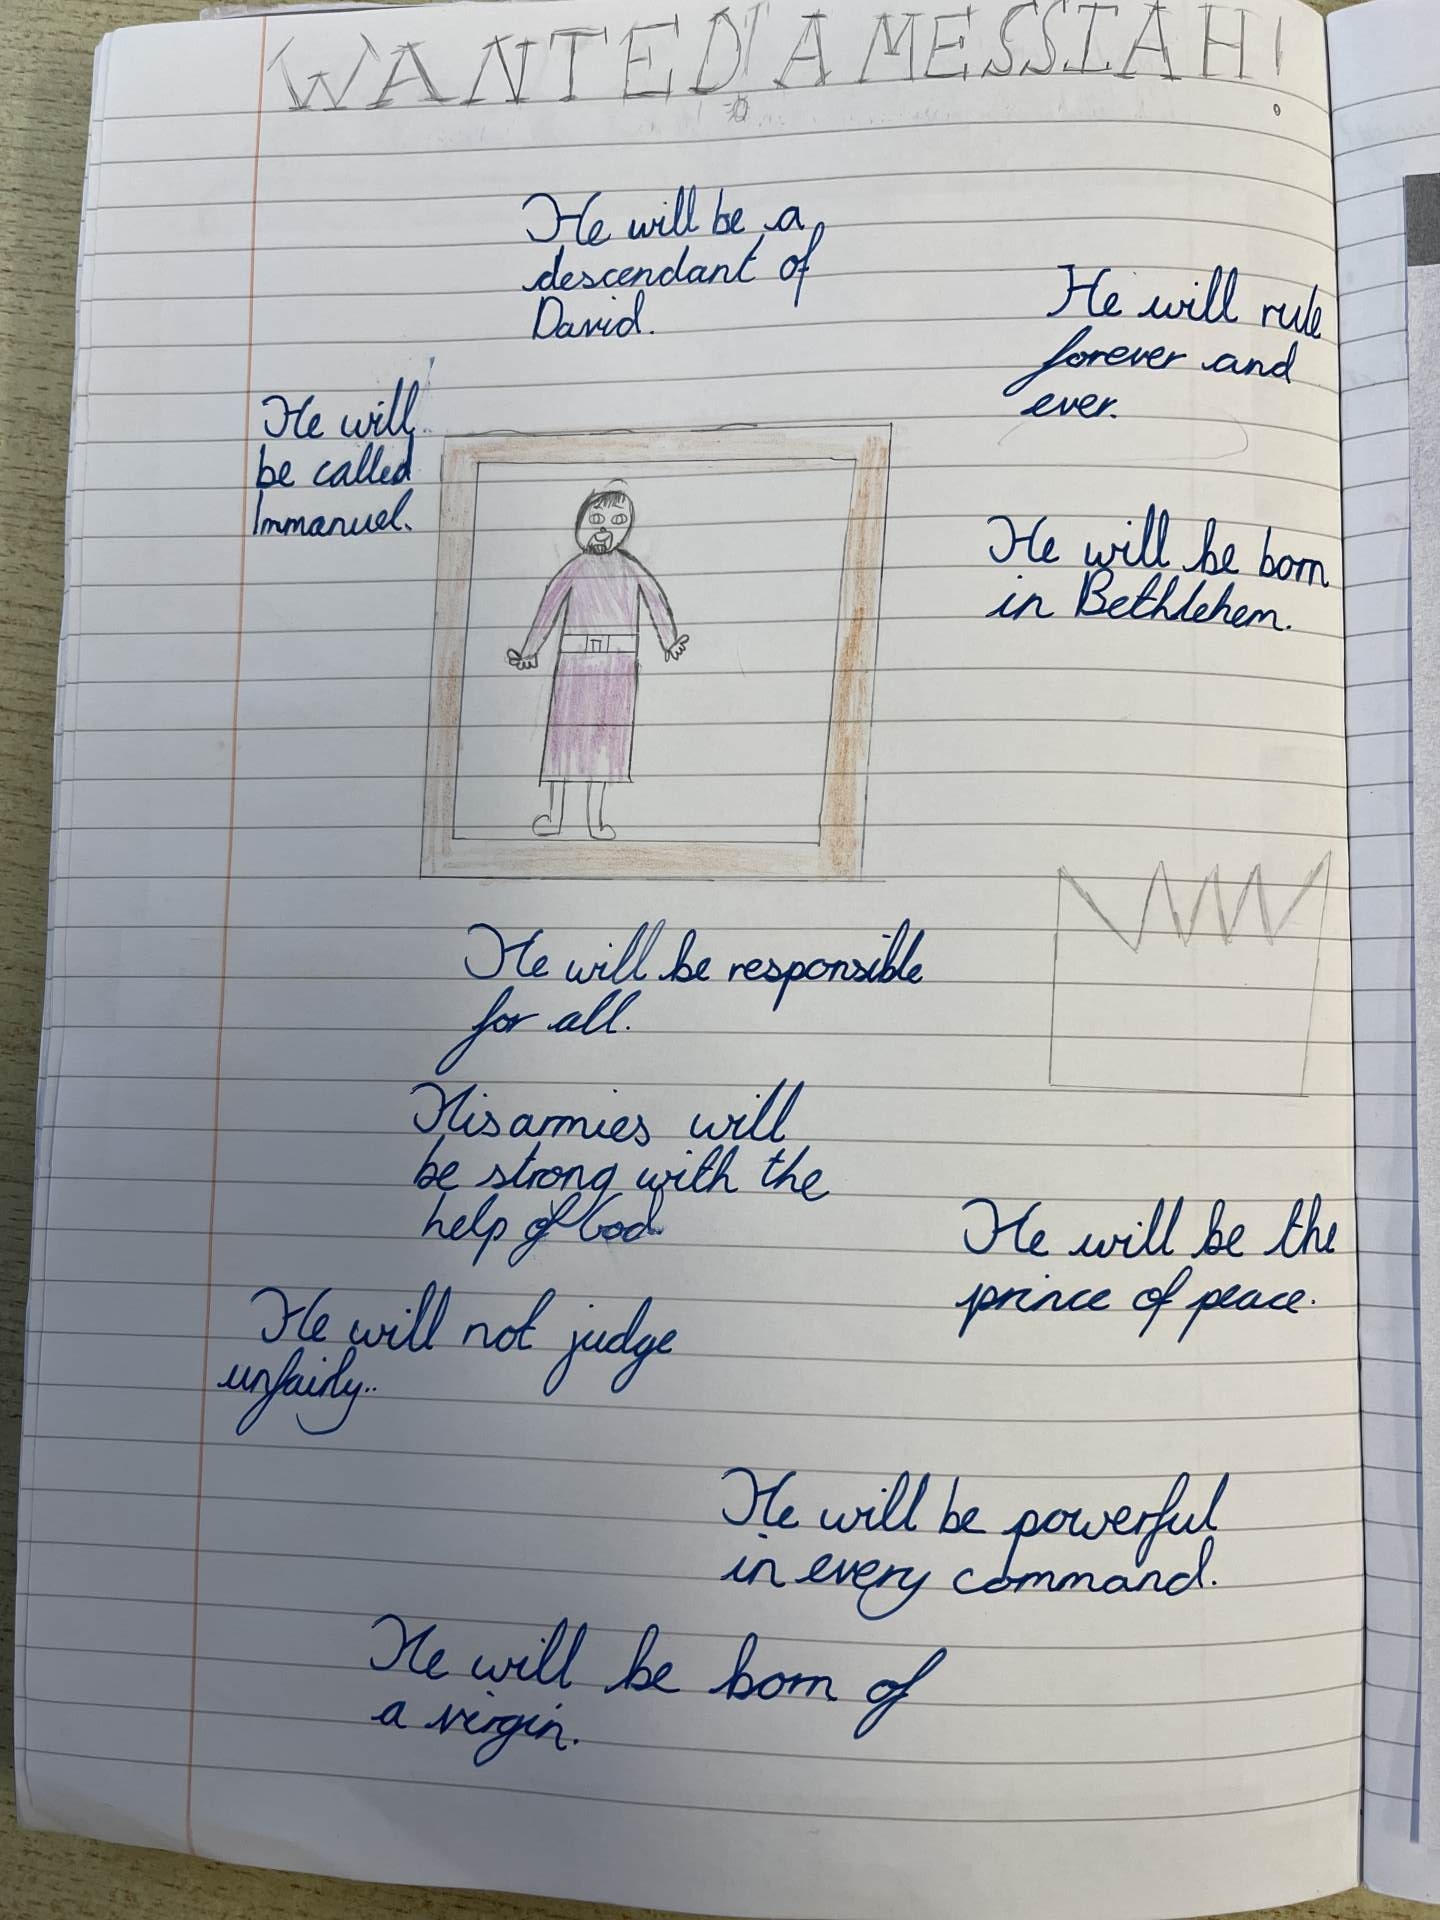 WANTED! A MESSIAH!
He will be a
descendant of
David.
He will rule
forever and
ever.
He will
be called
Immanuel.
He will be born
in Bethlehem.
He will be responsible
for all.
His armies will
be strong with the
help of God
He will be the
prince of peace.
He will not judge
unfairly..
He will be powerful
in every command.
He will be born of
a virgin.